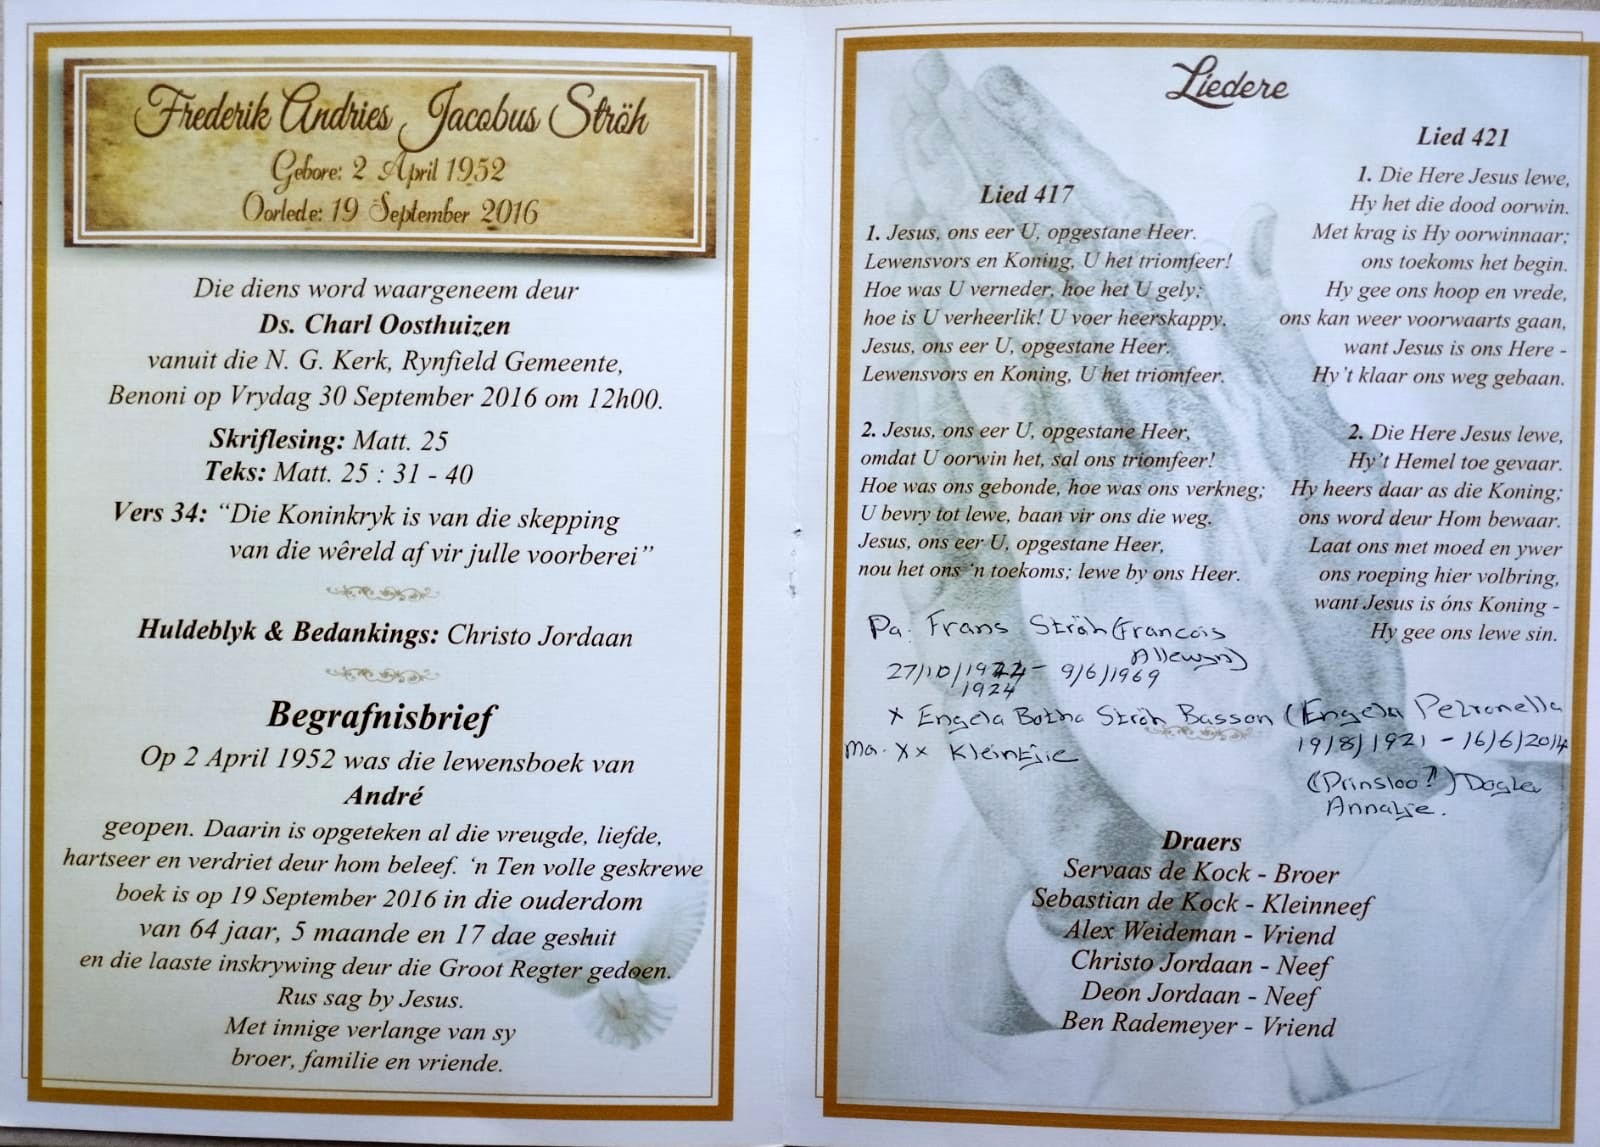 Frederik Andries Jacobus Ströh
Gebore: 2 April 1952
Oorlede: 19 September 2016
Die diens word waargeneem deur
Ds. Charl Oosthuizen
vanuit die N. G. Kerk, Rynfield Gemeente,
Benoni op Vrydag 30 September 2016 om 12h00.
Skriflesing: Matt. 25
Teks: Matt. 25 : 31 - 40
Vers 34: “Die Koninkryk is van die skepping
van die wêreld af vir julle voorberei”
Huldeblyk & Bedankings: Christo Jordaan
Begrafnisbrief
Op 2 April 1952 was die lewensboek van
André
geopen. Daarin is opgeteken al die vreugde, liefde,
hartseer en verdriet deur hom beleef. ‘n Ten volle geskrewe
boek is op 19 September 2016 in die ouderdom
van 64 jaar, 5 maande en 17 dae gesluit
en die laaste inskrywing deur die Groot Regter gedoen.
Rus sag by Jesus.
Met innige verlange van sy
broer, familie en vriende.
Liedere
Lied 417
1. Jesus, ons eer U, opgestane Heer.
Lewensvors en Koning, U het triomfeer!
Hoe was U verneder, hoe het U gely;
hoe is U verheerlik! U voer heerskappy.
Jesus, ons eer U, opgestane Heer.
Lewensvors en Koning, U het triomfeer.
2. Jesus, ons eer U, opgestane Heer,
omdat U oorwin het, sal ons triomfeer!
Hoe was ons gebonde, hoe was ons verkneg;
U bevry tot lewe, baan vir ons die weg.
Jesus, ons eer U, opgestane Heer,
nou het ons ‘n toekoms; lewe by ons Heer.
Lied 421
1. Die Here Jesus lewe,
Hy het die dood oorwin.
Met krag is Hy oorwinnaar;
ons toekoms het begin.
Hy gee ons hoop en vrede,
ons kan weer voorwaarts gaan,
want Jesus is ons Here -
Hy’t klaar ons weg gebaan.
2. Die Here Jesus lewe,
Hy’t Hemel toe gevaar.
Hy heers daar as die Koning;
ons word deur Hom bewaar.
Laat ons met moed en ywer
ons roeping hier volbring,
want Jesus is óns Koning -
Hy gee ons lewe sin.
Pa: Frans Ströh (Francois
Allewyn)
27/10/1922 - 9/6/1969
1924
x Engela Botha Ströh Basson (Engela Petronella
19/8/1921 - 16/6/2014
Ma. xx Kleintjie
(Prinsloo?) Dogter
Annatjie.
Draers
Servaas de Kock - Broer
Sebastian de Kock - Kleinneef
Alex Weideman - Vriend
Christo Jordaan - Neef
Deon Jordaan - Neef
Ben Rademeyer - Vriend